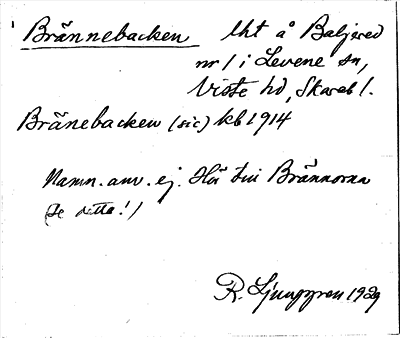 1 Brännebacken lht å Baljered
nr 1 i Levene sn,
Viste hd, Skarab l.
Bränebacken (sic) kb 1914
Namn. anv. ej. Hör till Brännorna
(Se detta!)
R. Ljunggren 1929